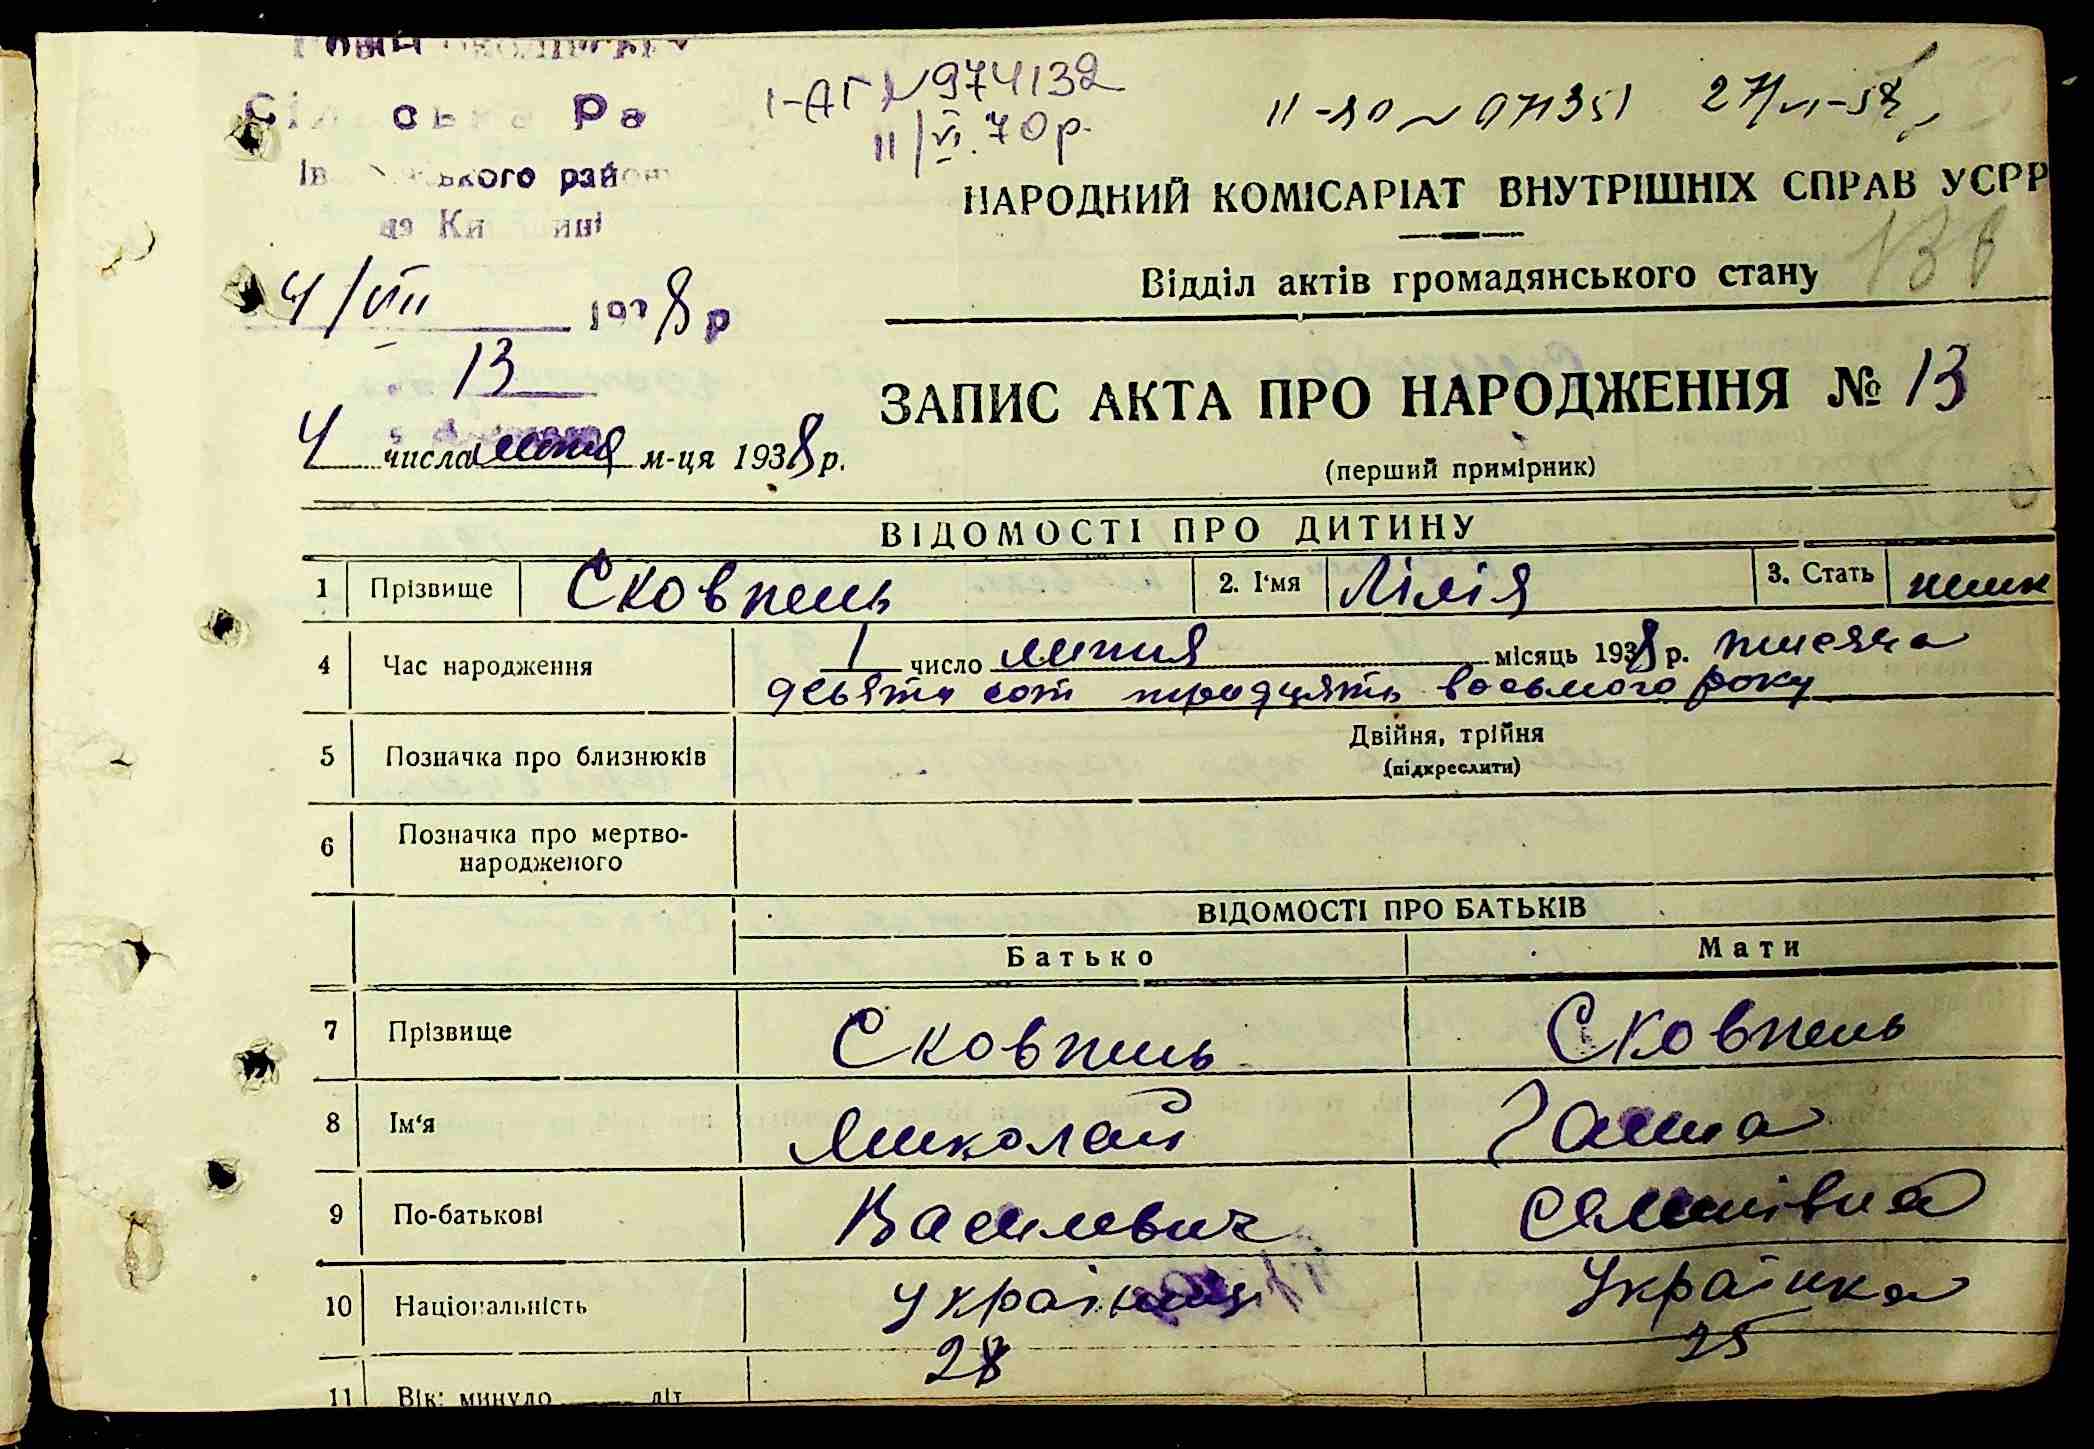 ька Ра
району
на
4/VII 1938 р
13
4 числа липня м-ця 1938 р.
I-АГ № 974132
11/VI. 70 р.
НАРОДНИЙ КОМІСАРІАТ ВНУТРІШНІХ СПРАВ УСРР
Відділ актів громадянського стану
ЗАПИС АКТА ПРО НАРОДЖЕННЯ № 13
(перший примірник)
ВІДОМОСТІ ПРО ДИТИНУ
1 Прізвище Сковпень 2. І'мя Лілія 3. Стать жін
4 Час народження 1 число липня місяць 1938 р. тисяча
девятсот тридцять восьмого року
5 Позначка про близнюків Двійня, трійня
(підкреслити)
6 Позначка про мертво-
народженого
ВІДОМОСТІ ПРО БАТЬКІВ
Батько Мати
7 Прізвище Сковпень Сковпень
8 Ім'я Миколай Ганна
9 По-батькові Василевич
10 Національність Українець Українка
11 Вік: минуло літ 28 25